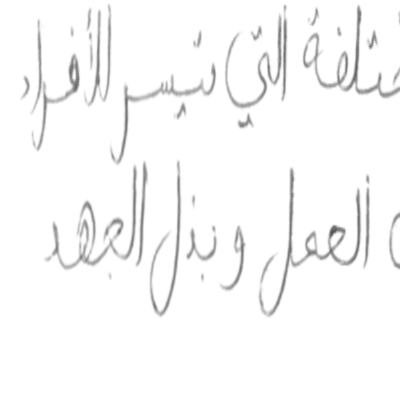 التي تيسر للأفراد
العمل وبذل الجهد